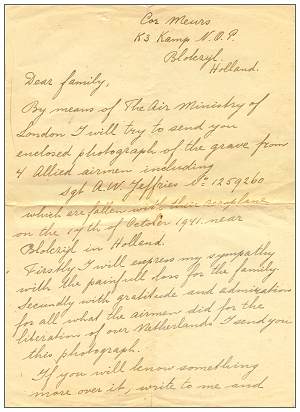 Cor Meurs
K3 Kamp N.O.P.
Blokzyl.
Holland.
Dear family,
By means of The Air Ministry of
London I will try to send you
enclosed photograph of the grave from
4 Allied airmen including
Sgt A.W. Jeffries No 1259260
which are fallen with their aeroplane
on the 14th of October 1941. near
Blokzijl in Holland.
Firstly I will express my sympathy
with the painfull loss for the family.
Secundly with gratitude and admirations
for all what the airmen did for the
liberation of our Netherlands I send you
this photograph.
If you will know something
more over it, write to me and